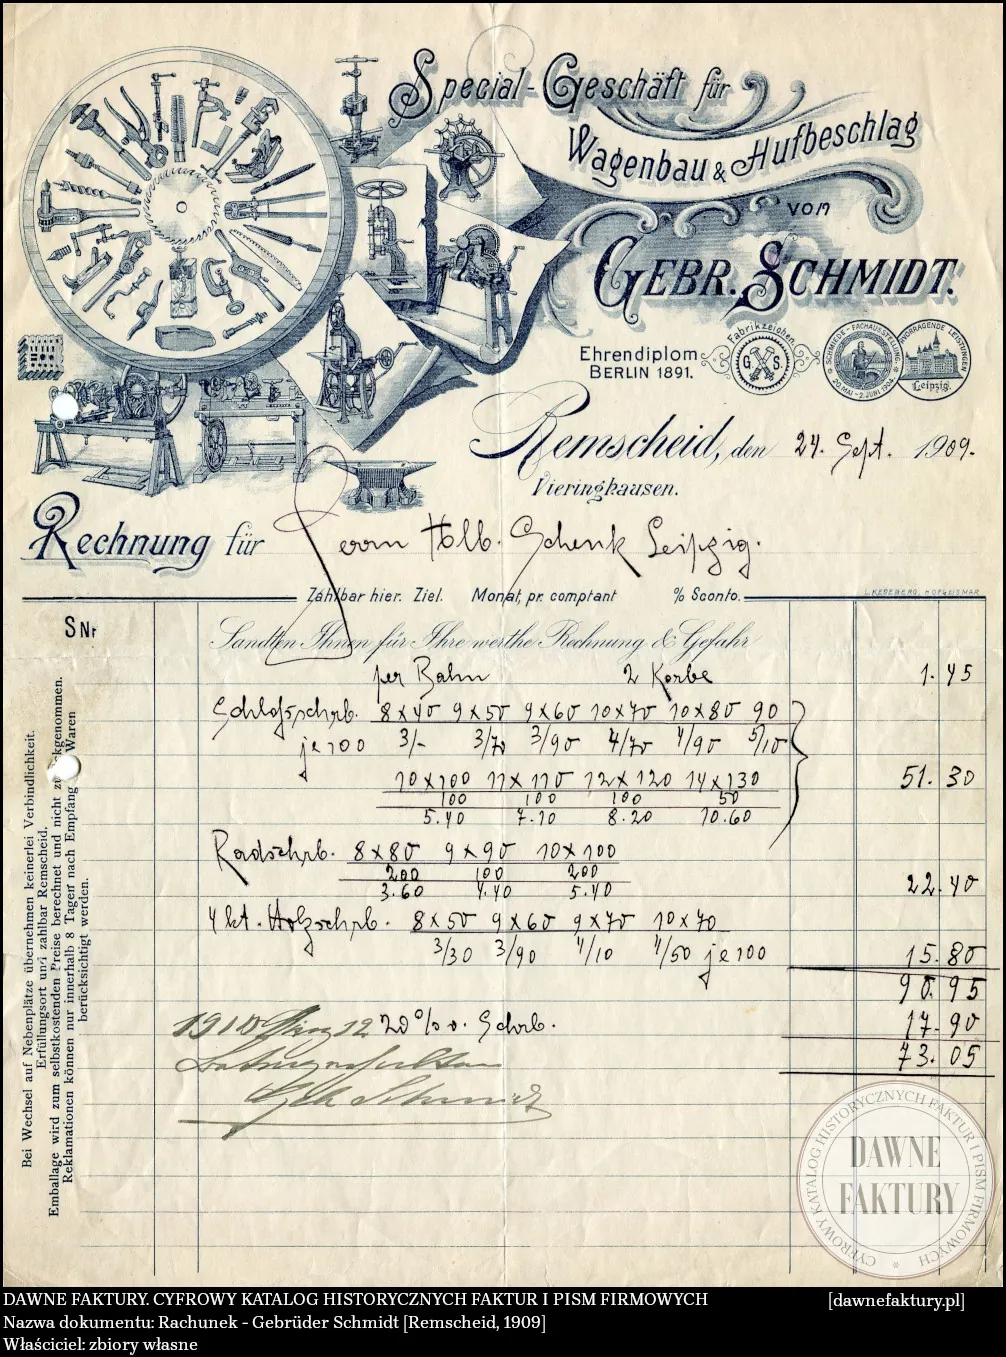 Special-Geschäft für
Wagenbau & Hufbeschlag
von
GEBR. SCHMIDT.
Ehrendiplom
BERLIN 1891.
Fabrikzeichen.
G S.
SCHMIEDE-FACHAUSSTELLUNG
20. MAI - 2. JUNI 1904
HERVORRAGENDE LEISTUNGEN
Leipzig.
Remscheid, den 24. Sept. 1909.
Vieringhausen.
Rechnung für Herrn Schenk Leipzig.
Zahlbar hier. Ziel. Monat, pr. comptant % Sconto.
L. KESEBERG, HOFGEISMAR
S Nr
Sandten Ihnen für Ihre werthe Rechnung & Gefahr
per Bahn 2 Körbe 1.45
Schloßschrb. 8x40 9x50 9x60 10x70 10x80 90
je 100 3/- 3/70 3/90 4/70 4/90 5/10
10x100 11x110 12x120 14x130 51.30
100 100 100 50
5.40 7.10 8.20 10.60
Radschrb. 8x80 9x90 10x100
200 100 200
3.60 4.40 5.40 22.40
4 kt. Holzschrb. 8x50 9x60 9x70 10x70
3/30 3/90 4/10 4/50 je 100 15.80
90.95
1910 12. 20% v. Schrb. 17.90
73.05
Schmidt
Bei Wechsel auf Nebenplätze übernehmen keinerlei Verbindlichkeit.
Erfüllungsort und zahlbar Remscheid.
Emballage wird zum selbstkostenden Preise berechnet und nicht zurückgenommen.
Reklamationen können nur innerhalb 8 Tagen nach Empfang Waren
berücksichtigt werden.
DAWNE FAKTURY
CYFROWY KATALOG HISTORYCZNYCH FAKTUR I PISM FIRMOWYCH
DAWNE FAKTURY. CYFROWY KATALOG HISTORYCZNYCH FAKTUR I PISM FIRMOWYCH [dawnefaktury.pl]
Nazwa dokumentu: Rachunek - Gebrüder Schmidt [Remscheid, 1909]
Właściciel: zbiory własne